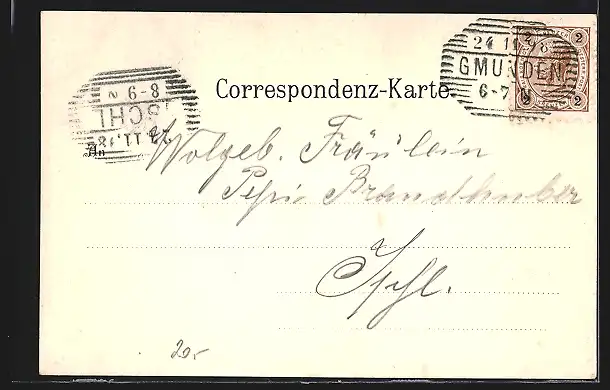 2 2
24 11 98
GMUNDEN
6-7 N
2 2
Correspondenz-Karte.
ISCHL
24.11.98
8-9
An
Wolgeb. Fräulein
Pepi Brandhuber
Ischl.
20.-